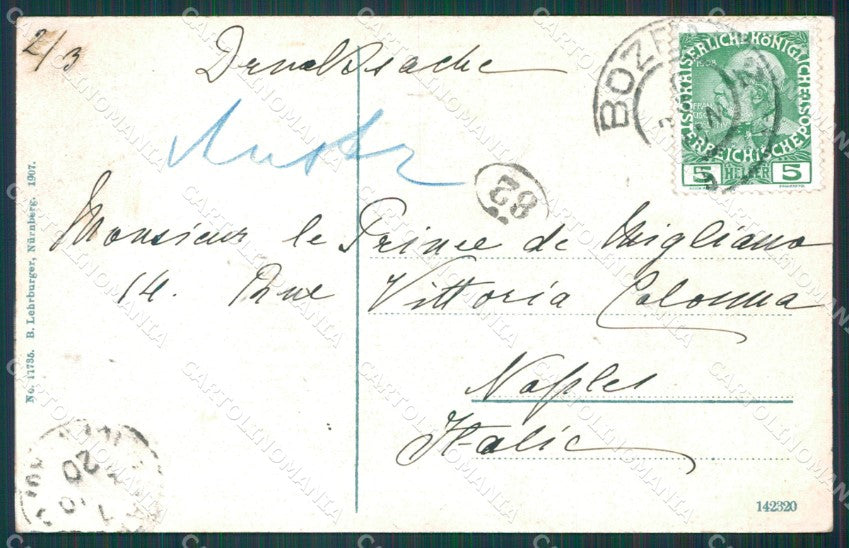 2/3
Drucksache
BOZEN
KAISERLICHE KÖNIGLICHE ÖSTERREICHISCHE POST
5 HELLER 5
Austr
82
Monsieur le Prince de Migliano
14. Rue Vittoria Colonna
Naples
Italie
No. 11735. B. Lehrburger, Nürnberg. 1907.
20
10
142320
CARTOLINOMANIA